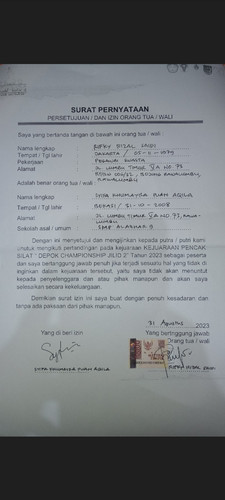 SURAT PERNYATAAN
PERSETUJUAN / DAN IZIN ORANG TUA / WALI
Saya yang bertanda tangan di bawah ini orang tua / wali :
Nama lengkap : RIFKY RIZAL
Tempat / Tgl lahir : JAKARTA / 05-11-1979
Pekerjaan : PEGAWAI SWASTA
Alamat : JL LUMBU TIMUR VA NO 73
BOJONG RAWALUMBU,
RAWALUMBU
Adalah benar orang tua / wali :
Nama lengkap : INTA KHUMAYRA RIAN AQILA
Tempat / Tgl lahir : BEKASI / 31-10-2008
Alamat : JL LUMBU TIMUR VA NO 73,
LUMBU
Sekolah asal / umum : SMP ALAZHAR 9
Dengan ini menyetujui dan mengijinkan kepada putra / putri kami
untuk mengikuti pertandingan pada kejuaraan KEJUARAAN PENCAK
SILAT " DEPOK CHAMPIONSHIP JILID 2" Tahun 2023 sebagai peserta
dan saya bertanggung jawab penuh jika terjadi sesuatu hal yang tidak di
inginkan dalam kejuaraan tersebut, yaitu saya tidak akan menuntut
kepada penyelenggara dan atau pihak manapun dan akan saya
selesaikan secara kekeluargaan.
Demikian surat izin ini saya buat dengan penuh kesadaran dan
tanpa ada paksaan dari pihak manapun.
31 Agustus 2023
Yang di beri izin
Yang bertanggung jawab
Orang tua / wali
INTA KHUMAIRA RIAN AQILA
RIFKY RIZAL